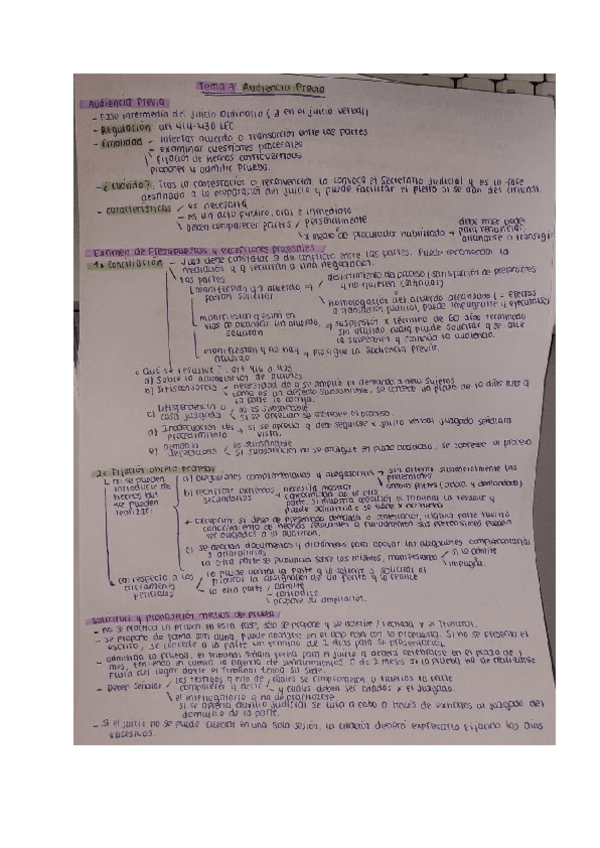 Tema 7 Audiencia Previa
Audiencia Previa
- Fase intermedia del juicio ordinario ( en el juicio verbal)
- Regulación art 414-430 LEC
- Finalidad - intentar acuerdo o transacción entre las partes
- examinar cuestiones procesales
Fijación de hechos controvertidos
proponer y admitir prueba.
- ¿Cuándo?, Tras la contestación o reconvención la convoca el Secretario Judicial y es la fase
destinada a la preparación del juicio y puede facilitar el pleito si se dan
- características es necesaria
- es un acto público, oral e inmediato
deben comparecer partes personalmente
x medio de procurador habilitado → debe tener poder
para renunciar,
allanarse o transigir
Examen de Presupuestos y excepciones procesales
1º Conciliación - Juez debe constatar conflicto entre las partes. Puede recomendar la
mediación y q recurran a una negociación.
las partes
manifiestan q acuerdo, →
podrán solicitar
desistimiento del proceso (satisfacción de pretensiones
homologación del acuerdo alcanzado (- efectos
transacción judicial, puede impugnarse y
manifiestan q están en
vías de alcanzar un acuerdo,
solicitan
→ suspensión x término de 60 días terminado
sin acuerdo cualq puede solicitar q se alce
la suspensión y continúe la audiencia.
manifiestan q no hay
acuerdo
→ prosigue la audiencia previa.
Qué se resuelve?: art 416 a 425
a) Sobre la acumulación de acciones
b) Litisconsorcio - necesidad de q se amplíe la demanda a new sujetos
como es un defecto subsanable, se concede un plazo de 10 días para q
la parte lo corrija.
c) Litispendencia o
cosa juzgada
no es subsanable
si se aprecian se sobresee el proceso.
d) Inadecuación del
procedimiento
→ si se aprecia q debe seguirse x juicio verbal juzgado señalará
vista.
e) Demanda
defectuosa
es subsanable
si subsanación no se produce en plazo se sobresee el proceso
2º Fijación objeto procesal
no se pueden
introducir new
hechos pero
se pueden
realizar:
a) alegaciones complementarias y alegatorias → sin alterar sustancialmente las
pretensiones
ambas partes (actor y demandado)
b) rectificar extremos
secundarios
→ necesita mostrar
conformidad de la otra
parte. Si muestra oposición el Tribunal la resuelve y
puede admitirla
* Excepción: si después de presentada demanda o contestación, alguna parte
conocimiento de hechos relevantes q fundamenten sus pretensiones pueden
ser alegados a la audiencia.
c) se aportan documentos y dictámenes para apoyar las alegaciones complementarias
o aclaratorias
la otra parte se pronuncia sobre los mismos, manifestando si lo admite
impugna.
con respecto a los
dictámenes
periciales
lo puede aportar la parte q lo solicite o solicitar al
tribunal la designación de un perito q lo realice
la otra parte admite
contradice
propone su ampliación.
Solicitud y proposición medios de prueba
- no se practica la prueba en esta fase, sólo se propone y se admite / rechaza x el Tribunal.
- se propone de forma oral aunq puede aportarse en el acto escrito con la propuesta. Si no se presenta el
escrito, se concede a la parte un término de 2 días para su presentación.
- admitida la prueba, el tribunal señala fecha para el juicio q deberá celebrarse en el plazo de 1
mes, teniendo en cuenta la agenda de señalamientos o de 2 meses si la prueba ha de realizarse
fuera del lugar donde el Tribunal tenga su sede.
- Deben señalar los testigos q han de
comparecer y decir
cuáles se comprometen a traerlos su cliente
y cuáles deben ser citados x el juzgado.
el interrogatorio q ha de practicarse
si se aprecia auxilio judicial se lleva a cabo a través de exhortos al juzgado del
domicilio de la parte.
- Si el juicio no se puede celebrar en una sola sesión, la citación deberá expresarlo fijando los días
sucesivos.